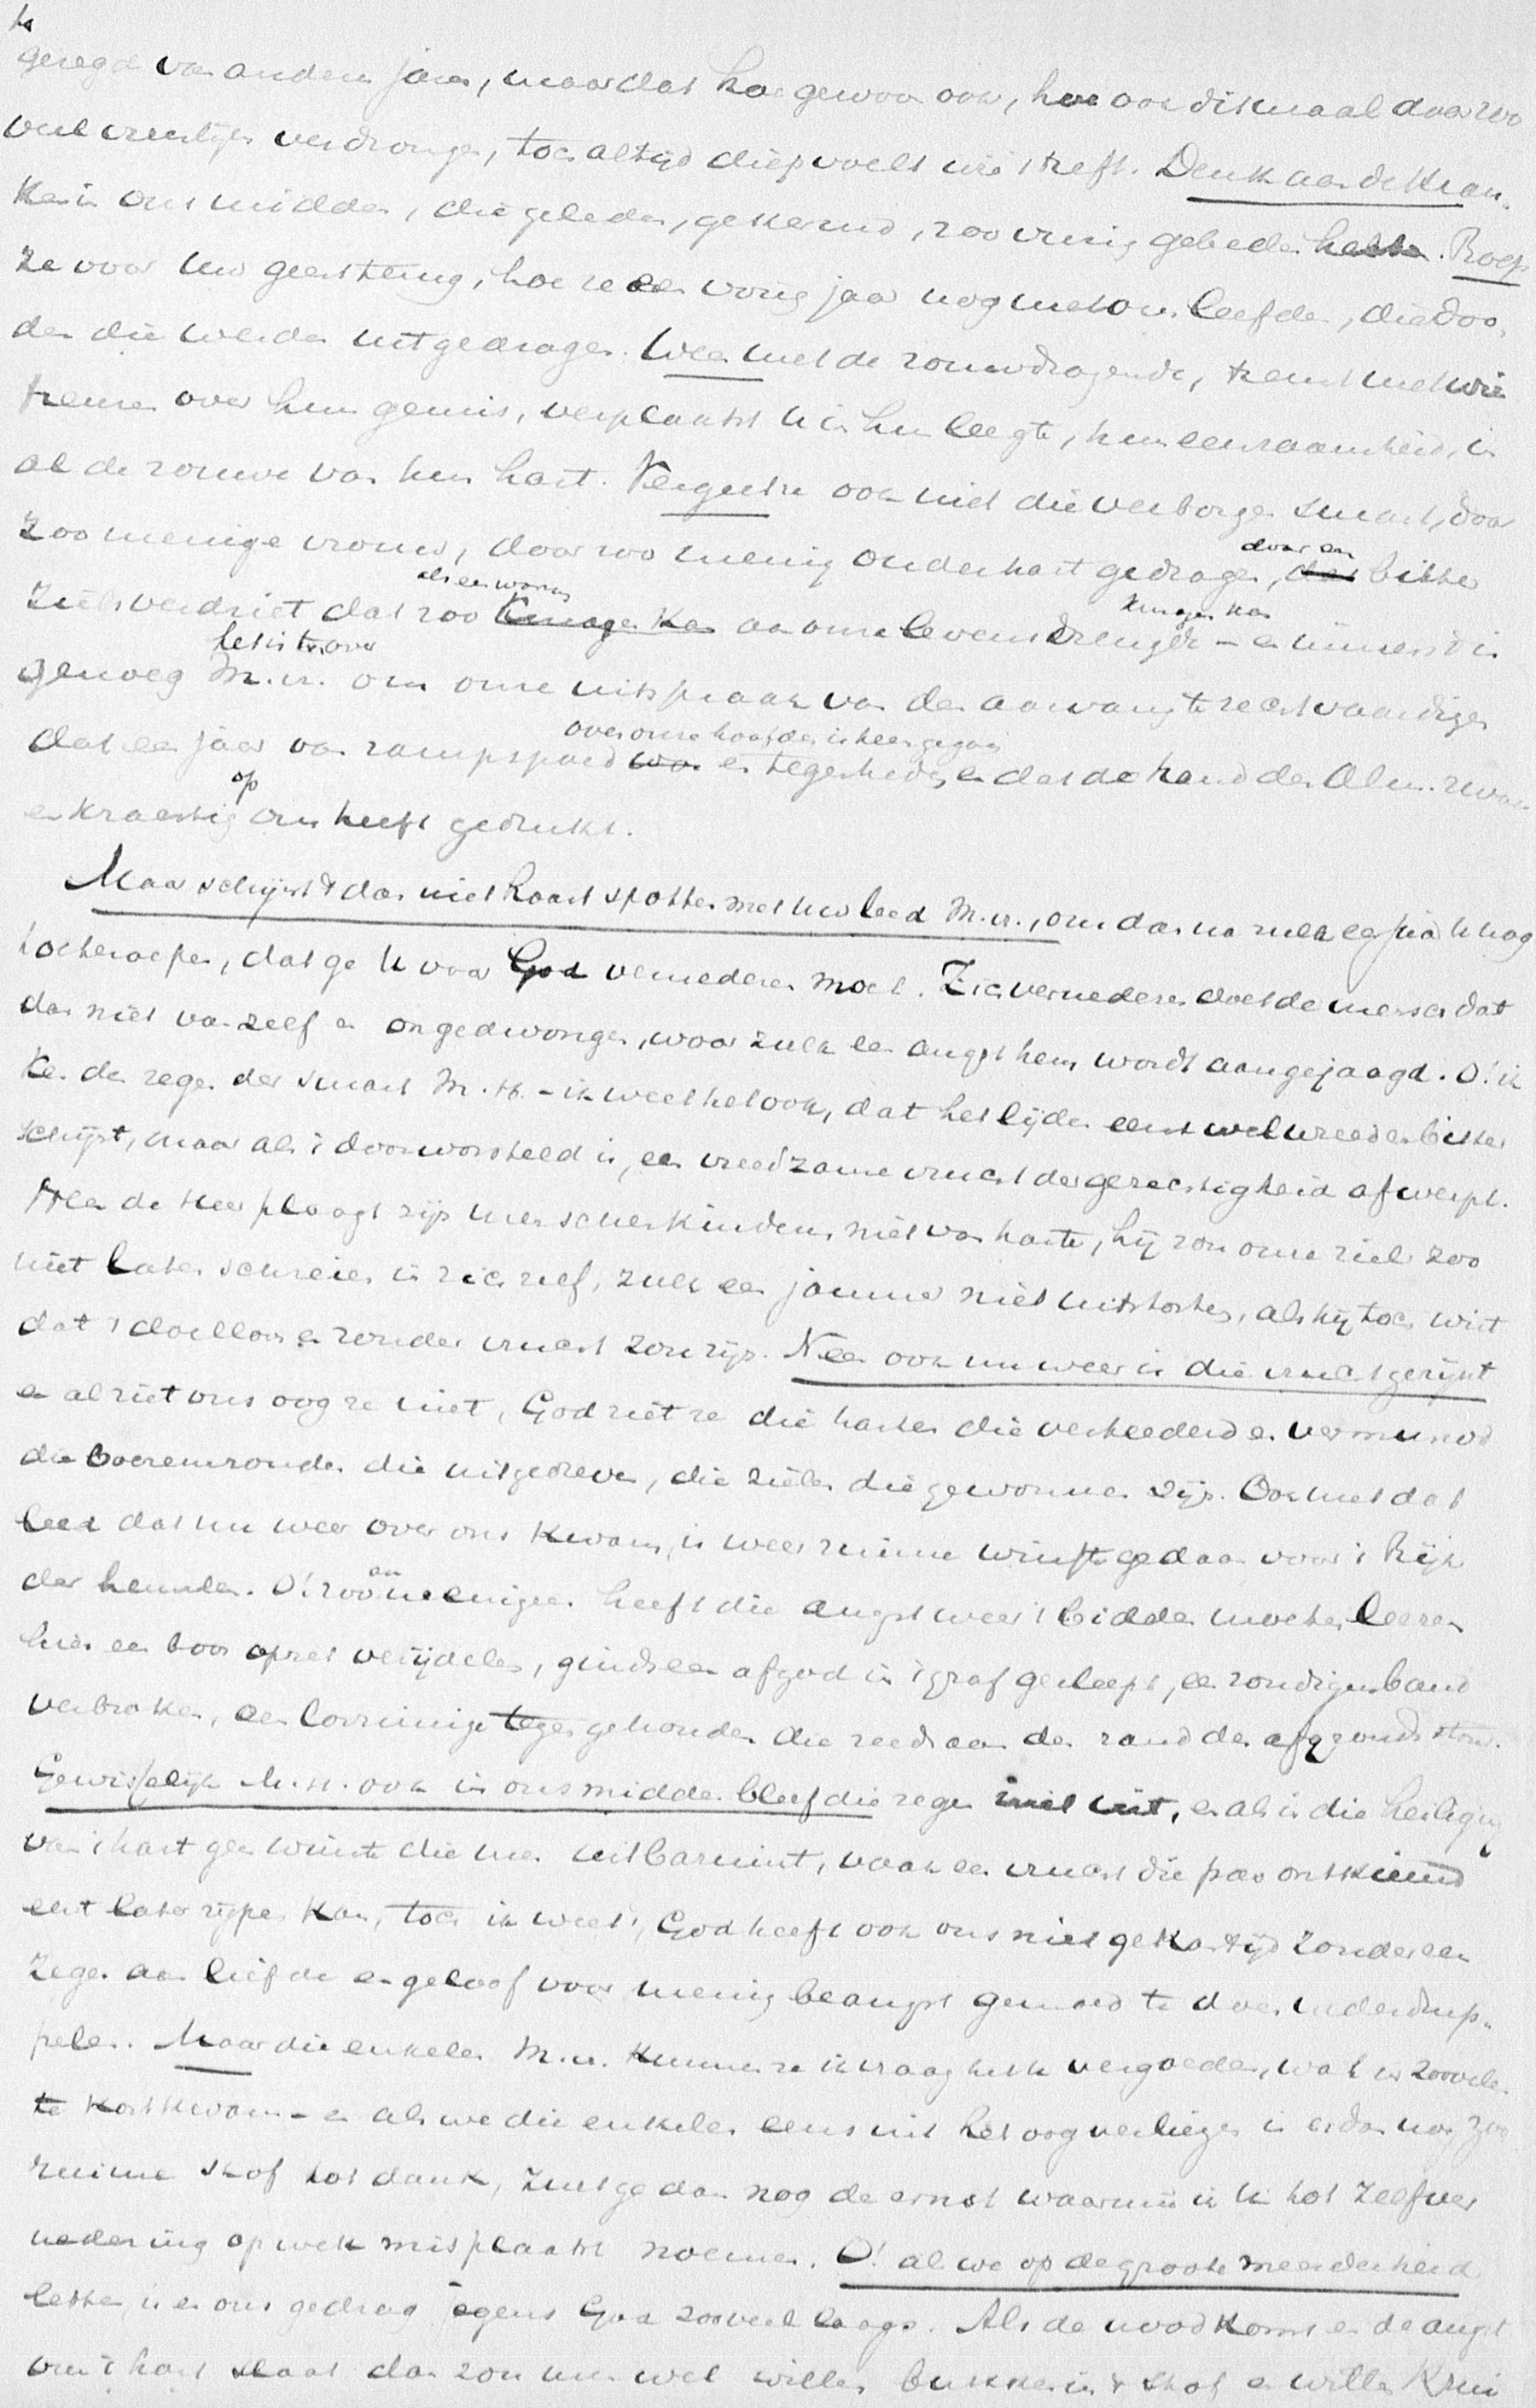 gezegd van andere jaren, maar dat hoe gewoon ook, hoe ook ditmaal door zoo
veel vreeslijks verdrongen, toch altijd diep voelt wie 't treft. Denk aan de kran-
ken in ons midden, die geleden, gekermd, zoo vurig gebeden hebben. Roep
ze voor uw geest terug, hoe ze een vorig jaar nog met ons leefden, die doo-
den die werden uitgedragen. Ween met de rouwdragende, treurt met wie
treuren over hun gemis, verplaatst U in hun leegte, hun eenzaamheid, in
al de rouwe van hun hart. Vergeet ze ook niet die verborgen smart, door
zoo menige vrouw, door zoo menig ouderhart gedragen, dat bitter
door een
zielsverdriet dat zoo knagen kan aan onze levensvreugde - en immers 't is
als een worm
knagen kan
genoeg M.H. om onze uitspraak van den aanvang te rechtvaardigen
het is over
dat een jaar van rampspoed was en tegenheden, en dat de hand des Alm. zwaar
over onze hoofden is heengegaan
en krachtig op ons heeft gedrukt.
Maar schijnt 't dan niet haast spotten met uw leed M.H., om dan na zulk een jaar U nog
toeteroepen, dat ge U voor God vernederen moet. Zich vernederen doet de mensch dat
dan niet van zelf en ongedwongen, waar zulk een angst hem wordt aangejaagd. O! ik
ken den zegen der smart M.H. - ik weet het ook, dat het lijden eerst wel wreed en bitter
schijnt, maar als 't doorworsteld is, een vreedzame vrucht der gerechtigheid afwerpt.
Neen de Heer plaagt zijn menschenkinderen niet van harte, hij zou onze ziel zoo
niet laten schreien in zich zelf, zulk een jammer niet uitstorten, als hij toch wist
dat 't doelloos en zonder vrucht zou zijn. Neen ook nu weer is die vrucht gerijpt
en al ziet ons oog ze niet, God ziet ze die harten die verteederd en vermurwd
die boezemzonden die uitgedreven, die zielen die gewonnen zijn. Ook met dat
leed dat nu weer over ons kwam, is weer ruime winste gedaan voor 't Rijk
der hemelen. O! zoo menigeen heeft die angst weer 't bidden moeten leeren
hier een boos opzet verijdelen, ginds een afgod in 't graf gesleept, een zondigen band
verbroken, een loszinnige tegengehouden die reeds aan den rand des afgronds stond.
Gewisselijk M.H. ook in ons midden bleef die zegen niet uit, en als in die heiliging
van 't hart geen winste die men uitbazuint, vaak een vrucht die pas ontkiemd
eerst later rijpen kan, toch ik weet 't, God heeft ook ons niet gekastijd zonder een
zegen aan liefde en geloof voor menig beangst gemoed te doen nederdrup-
pelen. Maar die enkelen M.H. kunnen ze ik vraag het U vergoeden, wat er zoovelen
te kort kwam - en als we die enkelen eens uit het oog verliezen is er dan nog zoo
ruime stof tot dank, zult ge dan nog de ernst waarmee ik U tot zelfver
nedering opwek misplaatst noemen. O! al we op de groote meerderheid
letten, is er ons gedrag tegens God zooveel laags. Als de nood komt en de angst
om 't hart slaat dan zou men wel willen bukken in 't stof en willen krui